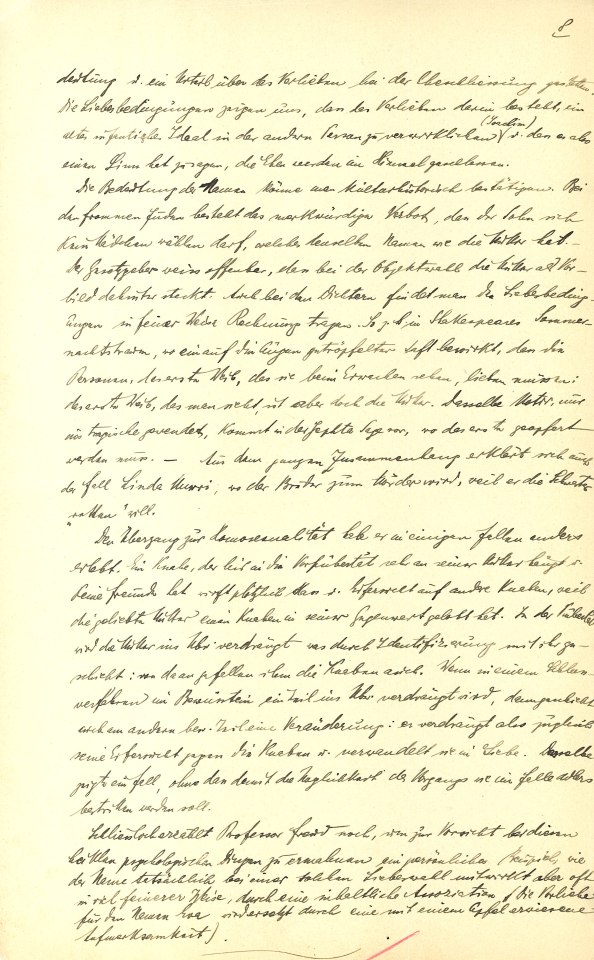 8
deutung u. ein Urteil über das Verlieben bei der Eheschliessung gestatten.
Die Liebesbedingungen zeigen uns, dass das Verlieben darin besteht, ein
altes infantiles Ideal in der andern Person zu verwirklichen u. dass es also
einen Sinn hat zu sagen, die Ehen werden im Himmel geschlossen.
Die Bedeutung der Namen könne man kulturhistorisch bestätigen. Bei
den frommen Juden besteht das merkwürdige Verbot, dass der Sohn sich
kein Mädchen wählen darf, welches denselben Namen wie die Mutter hat. –
Der Gesetzgeber weiss offenbar, dass bei der Objektwahl die Mutter als Vor-
bild dahinter steckt. Auch bei den Dichtern findet man den Liebesbeding-
ungen in feiner Weise Rechnung tragen. So z. b. in Shakespeares Sommer-
nachtstraum, wo ein auf die Augen geträpfelter Saft bewirkt, dass die
Personen, das erste Weib, das sie beim Erwachen sehen, lieben müssen:
das erste Weib, das man sieht, ist aber doch die Mutter. Dasselbe Motiv, nur
ins tragische gewendet, kommt in der Jephta Sage vor, wo das erste geopfert
werden muss. — Aus dem ganzen Zusammenhang erklärt sich auch
der Fall Linda Murri, wo der Bruder zum Mörder wird, weil er die Schwester
"retten" will.
Den Übergang zur Homosexualität habe er in einigen Fällen anders
erlebt. Ein Knabe, der bis in die Vorpubertät sehr an seiner Mutter hängt u.
keine Freunde hat wirft plötzlich Hass u. Eifersucht auf andre Knaben, weil
die geliebte Mutter einen Knaben in seiner Gegenwart gelobt hat. In der Pubertät
wird die Mutter ins Ubw verdrängt was durch Identifizierung mit ihr ge-
schieht: von da an gefallen ihm die Knaben auch. Wenn in einem
verfahren im Bewusstsein ein Teil ins Ubw verdrängt wird, dann geschieht
auch am andern bew. Teil eine Veränderung: er verdrängt also zugleich
seine Eifersucht gegen die Knaben u. verwandelt sie in Liebe. Dasselbe
zeigt ein Fall, ohne dass damit die Möglichkeit des Vorgangs wie im Falle Adlers
bestritten werden soll.
Schliesslich erzählt Professor Freud noch, um zur Vorsicht bei diesen
heiklen psychologischen Dingen zu ermahnen ein persönliches Beispiel, wie
der Name tatsächlich bei einer solchen Liebeswahl mitwirkt aber oft
in viel feinerer Weise, durch eine inhaltliche Assoziation (Die Vorliebe
für den Namen Eva wird ersetzt durch eine mit einem Apfel erwiesene
Aufmerksamkeit).